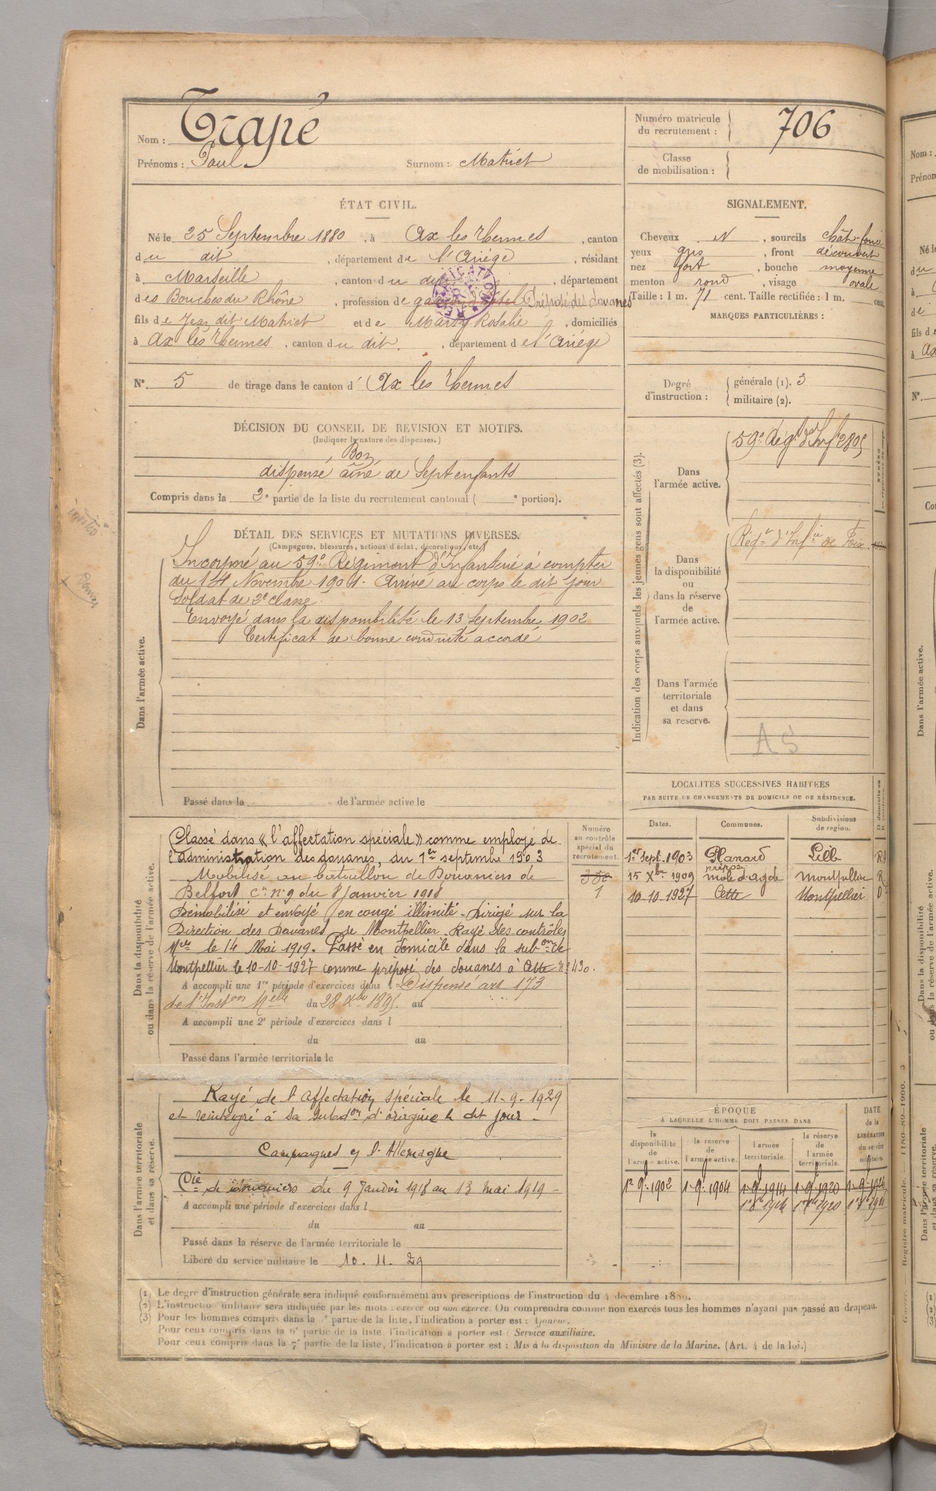 Nom : Trapé
Prénoms : Paul Surnom : Matriet
Numéro matricule du recrutement : 706
Classe de mobilisation :
ÉTAT CIVIL.
Né le 25 Septembre 1880, à Ax les Thermes, canton
du dit, département de l'Ariège, résidant
à Marseille, canton du dit, département
des Bouches du Rhône, profession de Préposé des douanes
fils de Jean dit Matriet et de Marty Rosalie, domiciliés
à Ax les Thermes, canton du dit, département de l'Ariège
N° 5 de tirage dans le canton d' Ax les Thermes
SIGNALEMENT.
Cheveux N, sourcils chât-foncé
yeux gris, front découvert
nez fort, bouche moyenne
menton rond, visage ovale
Taille : 1 m. 71 cent. Taille rectifiée : 1 m. cent.
MARQUES PARTICULIÈRES :
Degré d'instruction : générale (1). 3
militaire (2).
DÉCISION DU CONSEIL DE REVISION ET MOTIFS.
(Indiquer la nature des dispenses.)
Bon
dispensé aîné de Sept enfants
Compris dans la 2e partie de la liste du recrutement cantonal ( e portion).
DÉTAIL DES SERVICES ET MUTATIONS DIVERSES.
(Campagnes, blessures, actions d'éclat, décorations, etc.)
Dans l'armée active.
Incorporé au 59e Régiment d'Infanterie à compter
du 14 Novembre 1901. Arrivé au corps le dit jour
Soldat de 2e classe.
Envoyé dans la disponibilité le 13 Septembre 1902
Certificat de bonne conduite accordé
Passé dans la de l'armée active le
Indication des corps auxquels les jeunes gens sont affectés (3).
Dans l'armée active.
59e Rég. d'Inf.
Dans la disponibilité ou dans la réserve de l'armée active.
Rég. d'Inf. de Foix
Dans l'armée territoriale et dans sa reserve.
AS
LOCALITÉS SUCCESSIVES HABITÉES
PAR SUITE DE CHANGEMENTS DE DOMICILE OU DE RÉSIDENCE.
Dates. Communes. Subdivisions de region.
1er Sept. 1903 Lille R
15 Xbre 1909 môle d'agde Montpellier R
10.10.1927 Cette Montpellier D
Dans la disponibilité ou dans la réserve de l'armée active.
Numéro au contrôle spécial du recrutement.
Classé dans « l'affectation spéciale » comme employé de
l'administration des douanes, du 1er septembre 1903
Mobilisé au Bataillon de Douaniers de
Belfort Cie n° 9 du 8 janvier 1918
Démobilisé et envoyé en congé illimité. Dirigé sur la
Direction des Douanes de Montpellier. Rayé des contrôles
le 14 Mai 1919. Passé en domicile dans la subon de
Montpellier le 10-10-1927 comme préposé des douanes à Cette
A accompli une 1re période d'exercices dans l Dispensé art 173
de l'Inston Melle du 28 Xbre 1895 au
A accompli une 2e période d'exercices dans l
du au
Passé dans l'armée territoriale le
Dans l'armée territoriale et dans sa réserve.
Rayé de l'affectation spéciale le 11-9-1929
et réintégré à sa subdon d'origine le dit jour
Campagnes c/ l'Allemagne
Cie de douaniers du 9 Janvier 1918 au 13 mai 1919
A accompli une période d'exercices dans l
du au
Passé dans la réserve de l'armée territoriale le
Libéré du service militaire le 10.11.29
ÉPOQUE
À LAQUELLE L'HOMME DOIT PASSER DANS
la disponibilité de l'armée active. la réserve de l'armée active. l'armée territoriale. la réserve de l'armée territoriale. DATE de la LIBÉRATION du service militaire.
1er 9 1902 1-9-1904 1-9-1914 1-9-1920
(1) Le degré d'instruction générale sera indiqué conformément aux prescriptions de l'instruction du 4 décembre 1889.
(2) L'instruction militaire sera indiquée par les mots : exercé ou non exercé. On comprendra comme non exercés tous les hommes n'ayant pas passé au drapeau.
(3) Pour les hommes compris dans la partie de la liste, l'indication à porter est : Ajourné.
Pour ceux compris dans la partie de la liste, l'indication à porter est : Service auxiliaire.
Pour ceux compris dans la 7e partie de la liste, l'indication à porter est : Mis à la disposition du Ministre de la Marine. (Art. 4 de la loi.)